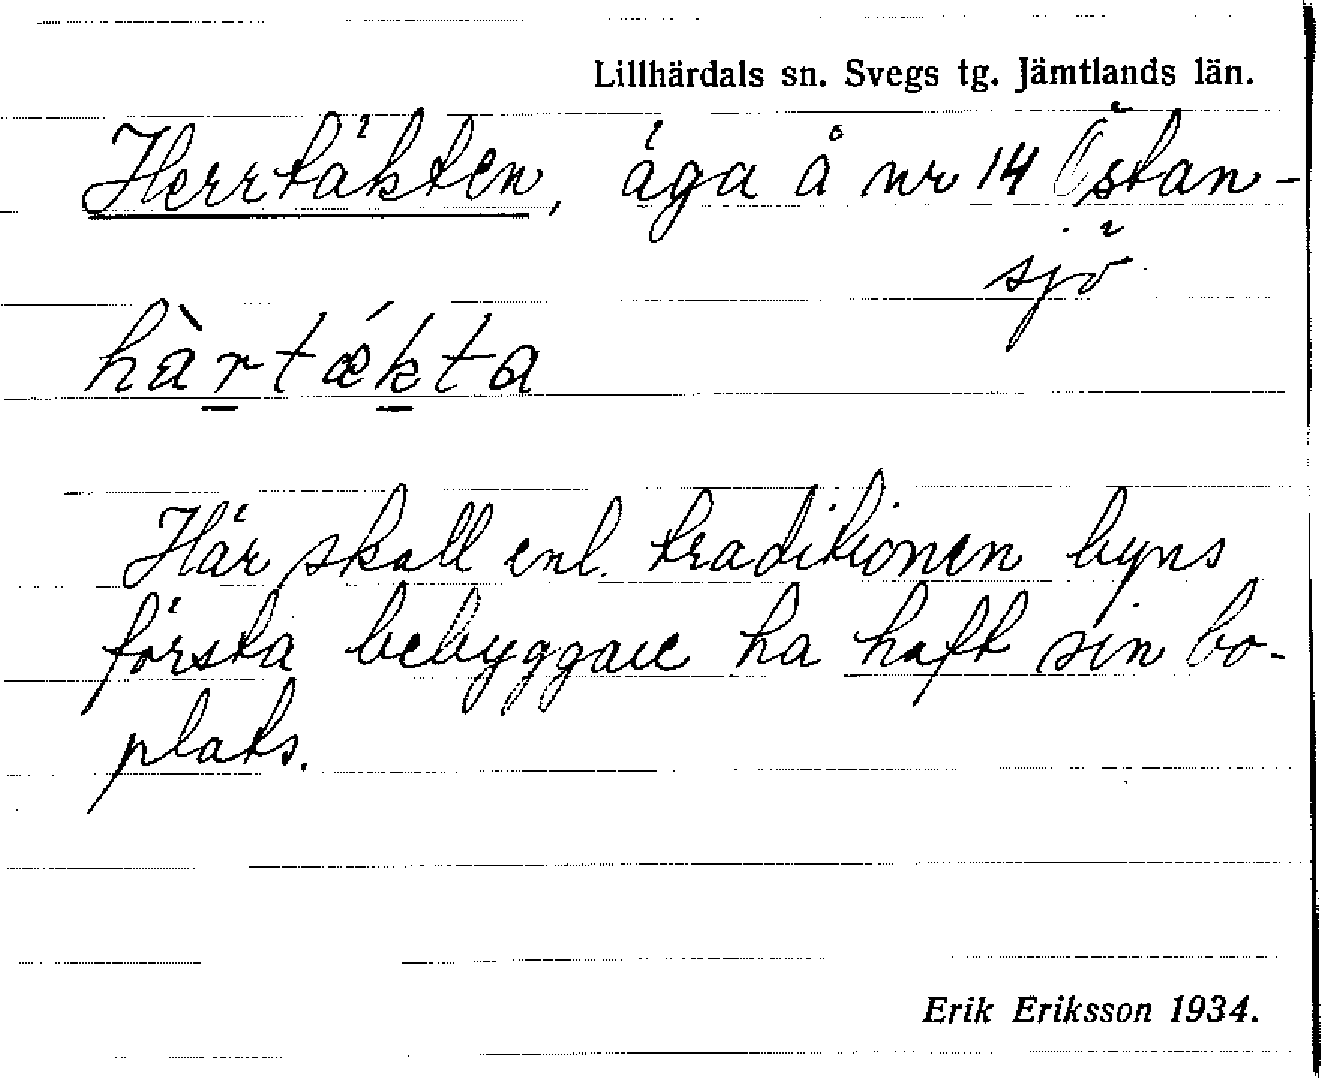 Lillhärdals sn. Svegs tg. Jämtlands län.
Herrtäkten, äga å nr 14 Östan-
sjö
hàrtǽkta
Här skall enl. traditionen byns
första bebyggare ha haft sin bo-
plats.
Erik Eriksson 1934.